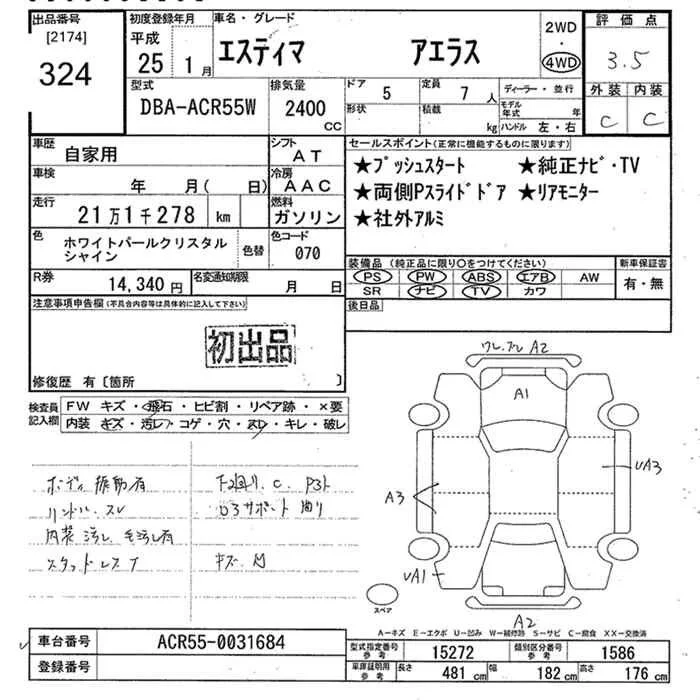 出品番号 初度登録年月 車名・グレード 2WD 評価点
[2174] 平成 エスティマ アエラス ・
324 25 1月 4WD 3.5
型式 排気量 ドア 5 定員 7人 ディーラー・並行 外装 内装
DBA-ACR55W 2400 cc 形状 積載 kg モデル年式 年 C C
ハンドル 左・右
車歴 自家用 シフト AT セールスポイント(正常に機能するものに限ります)
車検 年 月( 日) 冷房 AAC ★プッシュスタート ★純正ナビ・TV
走行 21万1千278 km 燃料 ガソリン ★両側Pスライドドア ★リアモニター
★社外アルミ
色 ホワイトパールクリスタル 色替 色コード
シャイン 070
装備品(純正品に限り○をつけてください) 新車保証書
R券 14,340円 名変通知期限 月 日 PS PW ABS エアB AW 有・無
SR ナビ TV カワ
注意事項申告欄(不具合内容等は具体的に記入して下さい) 後日品
初出品
修復歴 有〔箇所 〕
検査員 FW キズ・飛石・ヒビ割・リペア跡・×要
記入欄 内装 キズ・汚レ・コゲ・穴・スレ・キレ・破レ
ボディ 振動有 下回り.C. P3ト
ハンドル スレ
内装 汚レ 毛汚レ有
スタッドレス キズ
A2
A1
A3 UA3
UA1
スペア A2
A-キズ E-エクボ U-凹み W-補修跡 S-サビ C-腐食 XX-交換済
車台番号 ACR55-0031684 型式指定番号 参考 15272 類別区分番号 参考 1586
登録番号 車庫証明用 参考 長さ 481cm 幅 182cm 高さ 176cm